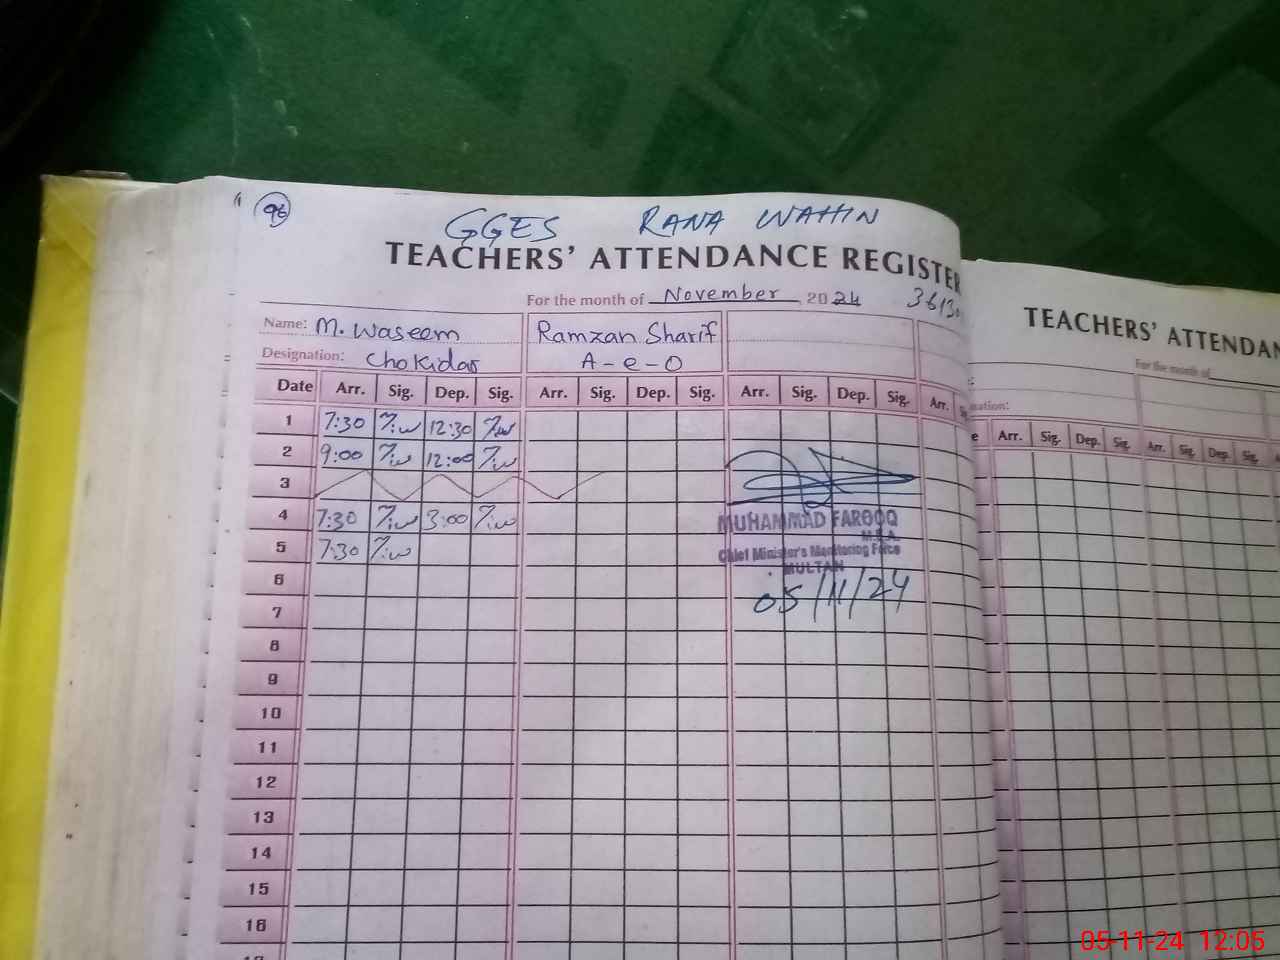 96
GGES RANA WAHIN
TEACHERS' ATTENDANCE REGISTER
For the month of November, 2024
Name: M. Waseem Ramzan Sharif
Designation: Chokidar A-e-O
Date Arr. Sig. Dep. Sig. Arr. Sig. Dep. Sig. Arr. Sig. Dep. Sig. Arr.
1 7:30 12:30
2 9:00 12:00
3
4 7:30 3:00
5 7:30
6
7
8
9
10
11
12
13
14
15
16
MUHAMMAD FAROOQ
M.E.A.
Chief Minister's Monitoring Force
MULTAN
05/11/24
TEACHERS' ATTENDAN
For the month of
Arr. Sig. Dep. Sig. Arr. Sig. Dep. Sig.
05-11-24 12:05